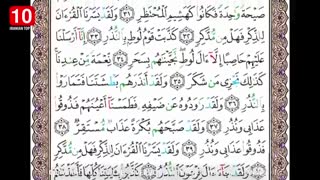 10
IRANIAN TOP
صَيْحَةً وَٰحِدَةً فَكَانُوا۟ كَهَشِيمِ ٱلْمُحْتَظِرِ ٣١ وَلَقَدْ يَسَّرْنَا ٱلْقُرْءَانَ
لِلذِّكْرِ فَهَلْ مِن مُّدَّكِرٍ ٣٢ كَذَّبَتْ قَوْمُ لُوطٍۭ بِٱلنُّذُرِ ٣٣ إِنَّآ أَرْسَلْنَا
عَلَيْهِمْ حَاصِبًا إِلَّآ ءَالَ لُوطٍ نَّجَّيْنَٰهُم بِسَحَرٍ ٣٤ نِّعْمَةً مِّنْ عِندِنَا
كَذَٰلِكَ نَجْزِى مَن شَكَرَ ٣٥ وَلَقَدْ أَنذَرَهُم بَطْشَتَنَا فَتَمَارَوْا۟
بِٱلنُّذُرِ ٣٦ وَلَقَدْ رَٰوَدُوهُ عَن ضَيْفِهِۦ فَطَمَسْنَآ أَعْيُنَهُمْ فَذُوقُوا۟
عَذَابِى وَنُذُرِ ٣٧ وَلَقَدْ صَبَّحَهُم بُكْرَةً عَذَابٌ مُّسْتَقِرٌّ ٣٨
فَذُوقُوا۟ عَذَابِى وَنُذُرِ ٣٩ وَلَقَدْ يَسَّرْنَا ٱلْقُرْءَانَ لِلذِّكْرِ فَهَلْ مِن مُّدَّكِرٍ
٤٠ وَلَقَدْ جَآءَ ءَالَ فِرْعَوْنَ ٱلنُّذُرُ ٤١ كَذَّبُوا۟ بِـَٔايَٰتِنَا كُلِّهَا